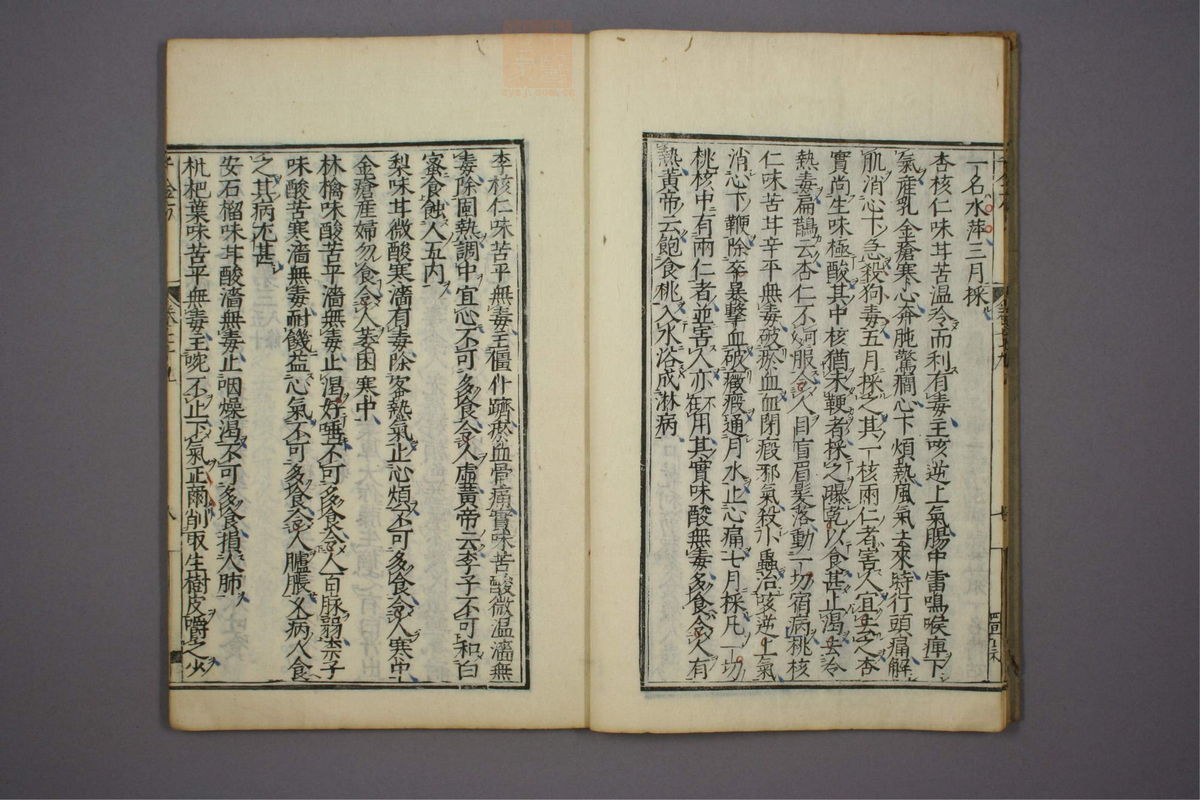 一名水萍三月採
杏核仁味苦温冷而利有毒主咳逆上氣腸中雷鳴喉痺下
氣産乳金瘡寒心奔肫驚癇心下煩熱風氣去來時行頭痛解
肌消心下急殺狗毒五月採之其一核兩仁者害人宜去之杏
實尚生味極酸其中核猶未鞕者採之曝乾以食甚止渇去冷
熱毒扁鵲云杏仁不可服令人目盲眉髮落動一切宿病桃核
仁味苦甘辛平無毒破瘀血血閉瘕邪氣殺小蟲治咳逆上氣
消心下鞕除卒暴擊血破癥瘕通月水止心痛七月採凡一切
桃核中有兩仁者並害人亦不用其實味酸無毒多食令人有
熱黄帝云飽食桃入水浴成淋病
李核仁味苦平無毒主僵仆躋瘀血骨痛實味苦酸微温濇無
毒除固熱調中宜心不可多食令人虛黄帝云李子不可和白
蜜食蝕人五内
梨味甘微酸寒濇有毒除客熱氣止心煩不可多食令人寒中
金瘡産婦勿食令人萎困寒中
林檎味酸苦平濇無毒止渇好唾不可多食令人百脉弱柰子
味酸苦寒濇無毒耐饑益心氣不可多食令人臚脹久病人食
之其病尤甚
安石榴味甘酸濇無毒止咽燥渇不可多食損人肺
枇杷葉味苦平無毒主啘不止下氣正爾削取生樹皮嚼之少